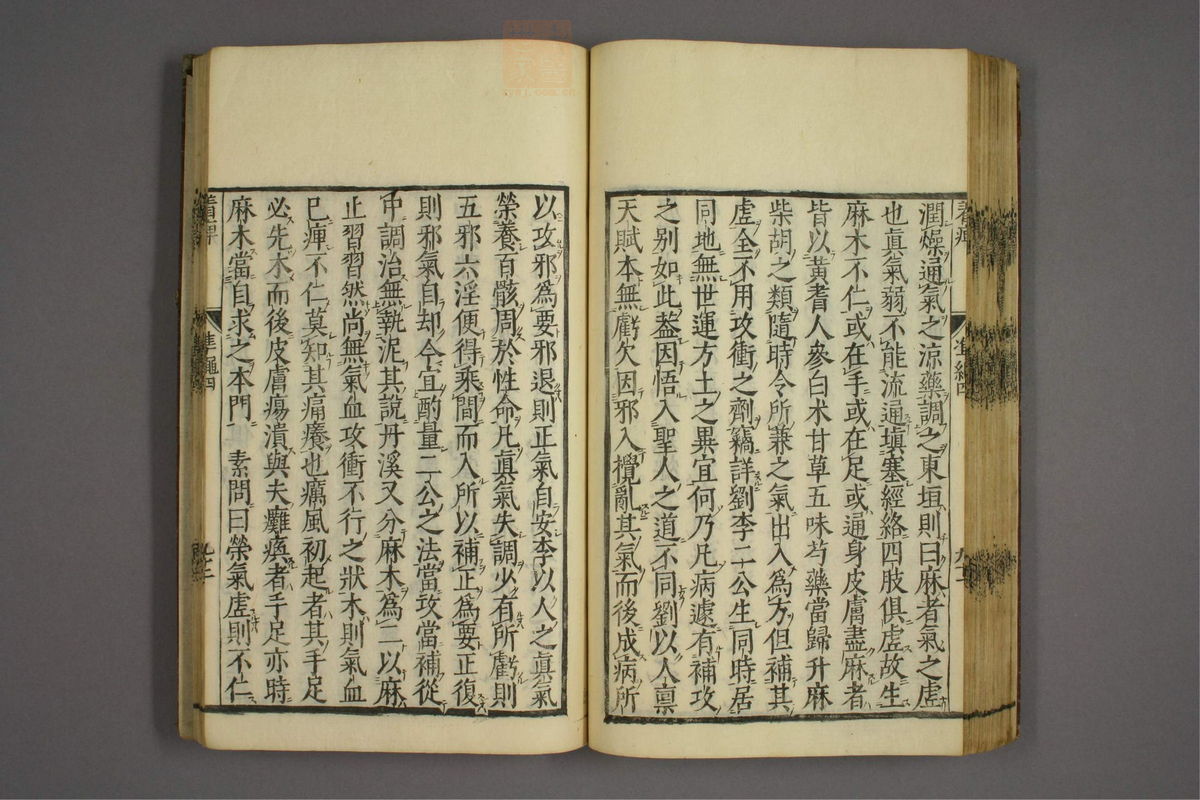 潤燥通氣之涼藥調之東垣則曰麻者氣之虛
也眞氣弱不能流通塡塞經絡四肢俱虛故生
麻木不仁或在手或在足或通身皮膚盡麻者
皆以黃耆人參白术甘草五味芍藥當歸升麻
柴胡之類隨時令所兼之氣出入爲方但補其
虛全不用攻衝之劑竊詳劉李二公生同時居
同地無世運方土之異宜何乃凡病遽有補攻
之别如此葢因悟入聖人之道不同劉以人禀
天賦本無虧欠因邪入攪亂其氣而後成病所
以攻邪爲要邪退則正氣自安李以人之眞氣
榮養百骸周於性命凡眞氣失調少有所虧則
五邪六淫便得乘間而入所以補正爲要正復
則邪氣自却今宜酌量二公之法當攻當補從
中調治無執泥其說丹溪又分麻木爲二以麻
止習習然尚無氣血攻衝不行之狀木則氣血
已痺不仁莫知其痛癢也癘風初起者其手足
必先木而後皮膚瘍潰與夫癱瘓者手足亦時
麻木當自求之本門 素問曰榮氣虛則不仁
準繩四